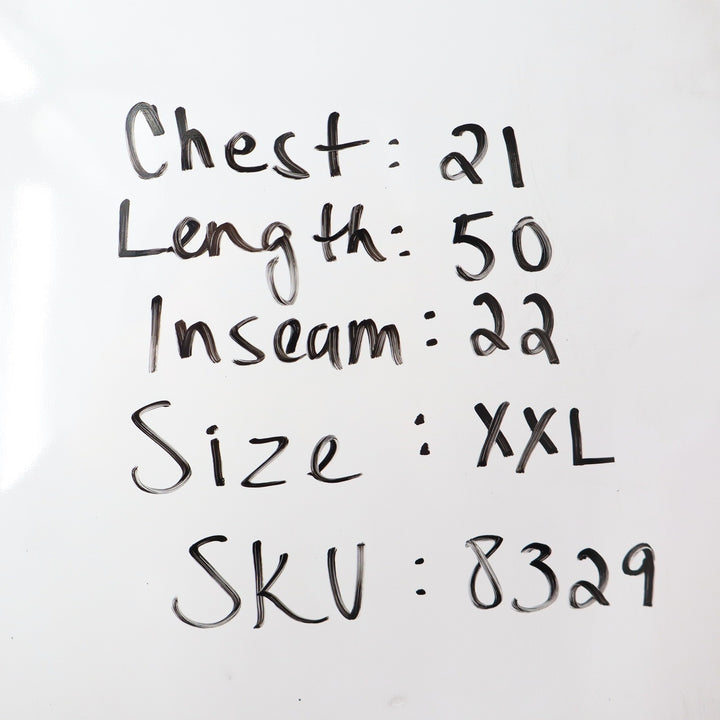 Chest: 21
Length: 50
Inseam: 22
Size : XXL
SKU : 8329